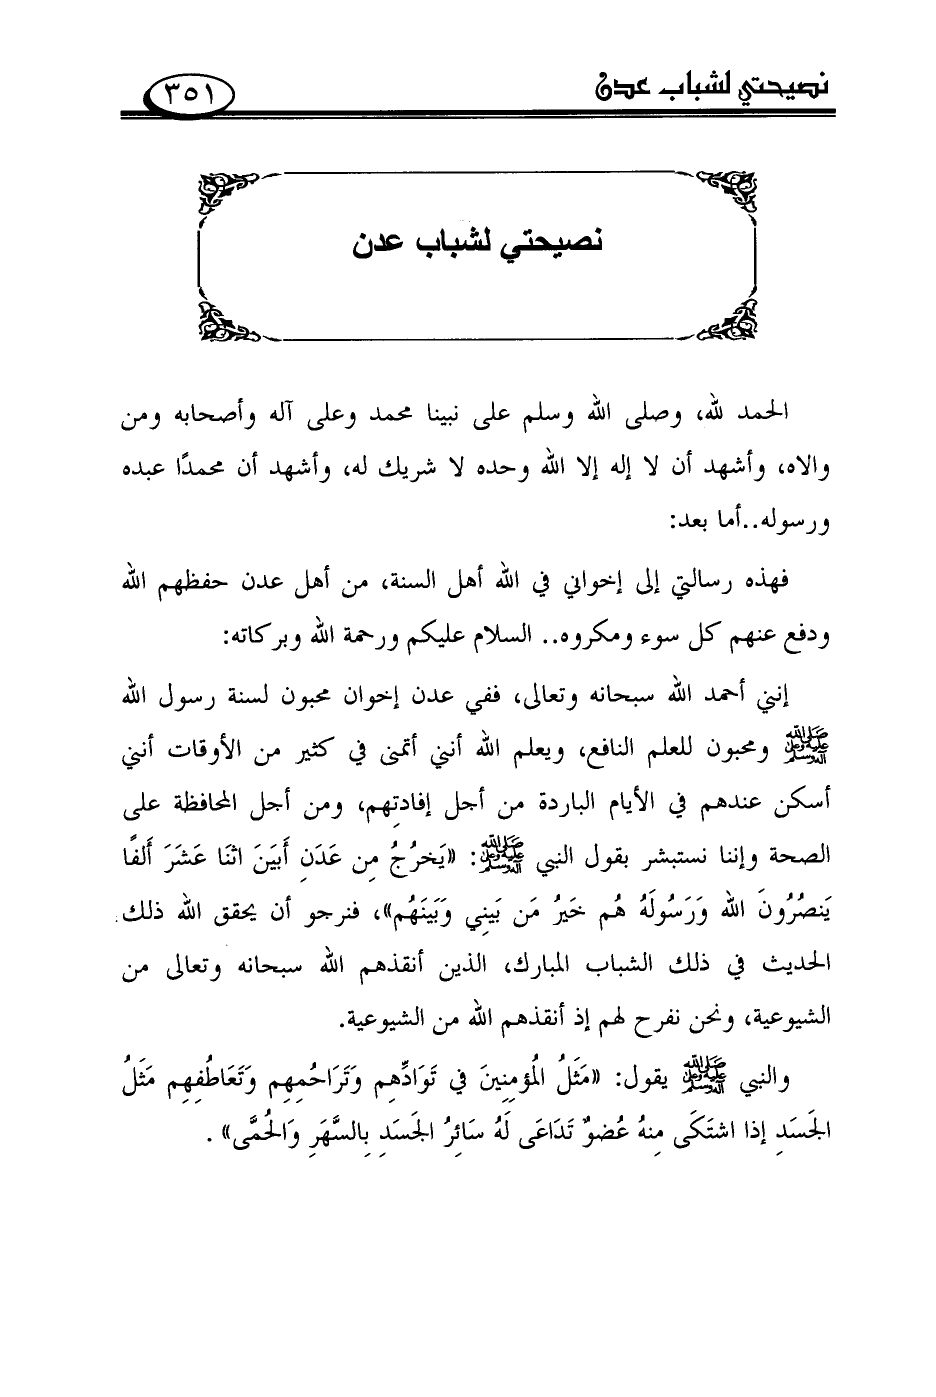 نصيحتي لشباب عدن ٣٥١
نصيحتي لشباب عدن
الحمد لله، وصلى الله وسلم على نبينا محمد وعلى آله وأصحابه ومن
والاه، وأشهد أن لا إله إلا الله وحده لا شريك له، وأشهد أن محمدًا عبده
ورسوله..أما بعد:
فهذه رسالتي إلى إخواني في الله أهل السنة، من أهل عدن حفظهم الله
ودفع عنهم كل سوء ومكروه.. السلام عليكم ورحمة الله وبركاته:
إنني أحمد الله سبحانه وتعالى، ففي عدن إخوان محبون لسنة رسول الله
ﷺ ومحبون للعلم النافع، ويعلم الله أنني أتمنى في كثير من الأوقات أنني
أسكن عندهم في الأيام الباردة من أجل إفادتِهم، ومن أجل المحافظة على
الصحة وإننا نستبشر بقول النبي ﷺ: «يَخرُجُ مِن عَدَنِ أَبيَنَ اثنَا عَشَرَ أَلفًا
يَنصُرُونَ الله وَرَسُولَهُ هُم خَيرُ مَن بَينِي وَبَينَهُم»، فنرجو أن يحقق الله ذلك
الحديث في ذلك الشباب المبارك، الذين أنقذهم الله سبحانه وتعالى من
الشيوعية، ونحن نفرح لهم إذ أنقذهم الله من الشيوعية.
والنبي ﷺ يقول: «مَثَلُ المُؤمِنِينَ في تَوَادِّهِم وَتَرَاحُمِهِم وَتَعَاطُفِهِم مَثَلُ
الجَسَدِ إذا اشتَكَى مِنهُ عُضوٌ تَدَاعَى لَهُ سَائِرُ الجَسَدِ بِالسَّهَرِ وَالحُمَّى» .